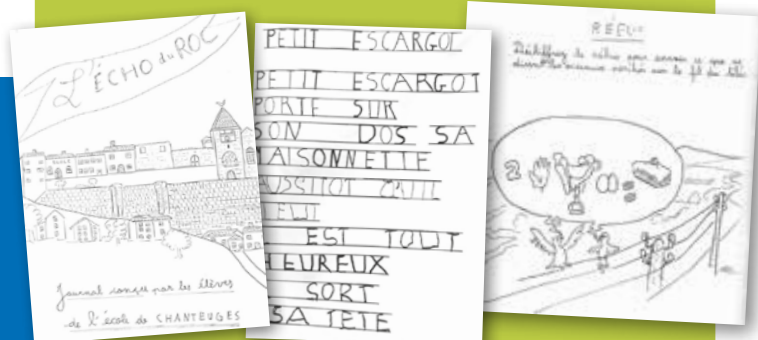 L'ÉCHO du ROC
Journal conçu par les élèves
de l'école de CHANTEUGES
PETIT ESCARGOT
PETIT ESCARGOT
PORTE SUR
SON DOS SA
MAISONNETTE
AUSSITOT QU'IL
PLEUT
IL EST TOUT
HEUREUX
SORT
SA TETE
Déchiffrez le rébus pour savoir ce que se
disent les oiseaux perchés sur le fil du télé
2